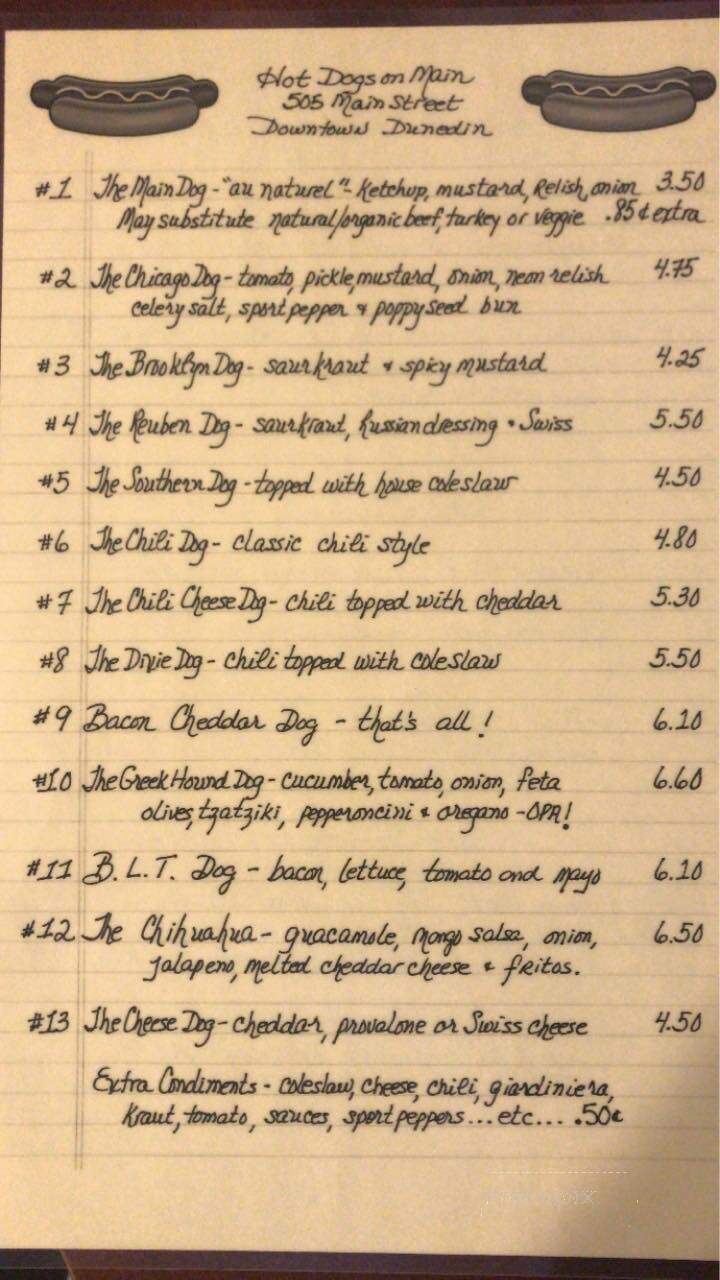 Hot Dogs on Main
505 Main Street
Downtown Dunedin
#1 The Main Dog - "au naturel" - Ketchup, mustard, Relish, onion 3.50
May substitute natural/organic beef, turkey or veggie .85¢ extra
#2 The Chicago Dog - tomato, pickle, mustard, onion, neon relish 4.75
celery salt, sport pepper & poppyseed bun
#3 The Brooklyn Dog - saurkraut & spicy mustard 4.25
#4 The Reuben Dog - saurkraut, Russian dressing & Swiss 5.50
#5 The Southern Dog - topped with house coleslaw 4.50
#6 The Chili Dog - classic chili style 4.80
#7 The Chili Cheese Dog - chili topped with cheddar 5.30
#8 The Dixie Dog - chili topped with coleslaw 5.50
#9 Bacon Cheddar Dog - that's all! 6.10
#10 The Greek Hound Dog - cucumber, tomato, onion, feta 6.60
olives, tzatziki, pepperoncini & oregano - OPA!
#11 B.L.T. Dog - bacon, lettuce, tomato and mayo 6.10
#12 The Chihuahua - guacamole, mango salsa, onion, 6.50
jalapeno, melted cheddar cheese & fritos.
#13 The Cheese Dog - cheddar, provalone or Swiss cheese 4.50
Extra Condiments - coleslaw, cheese, chili, giardiniera,
Kraut, tomato, sauces, sport peppers... etc... .50¢